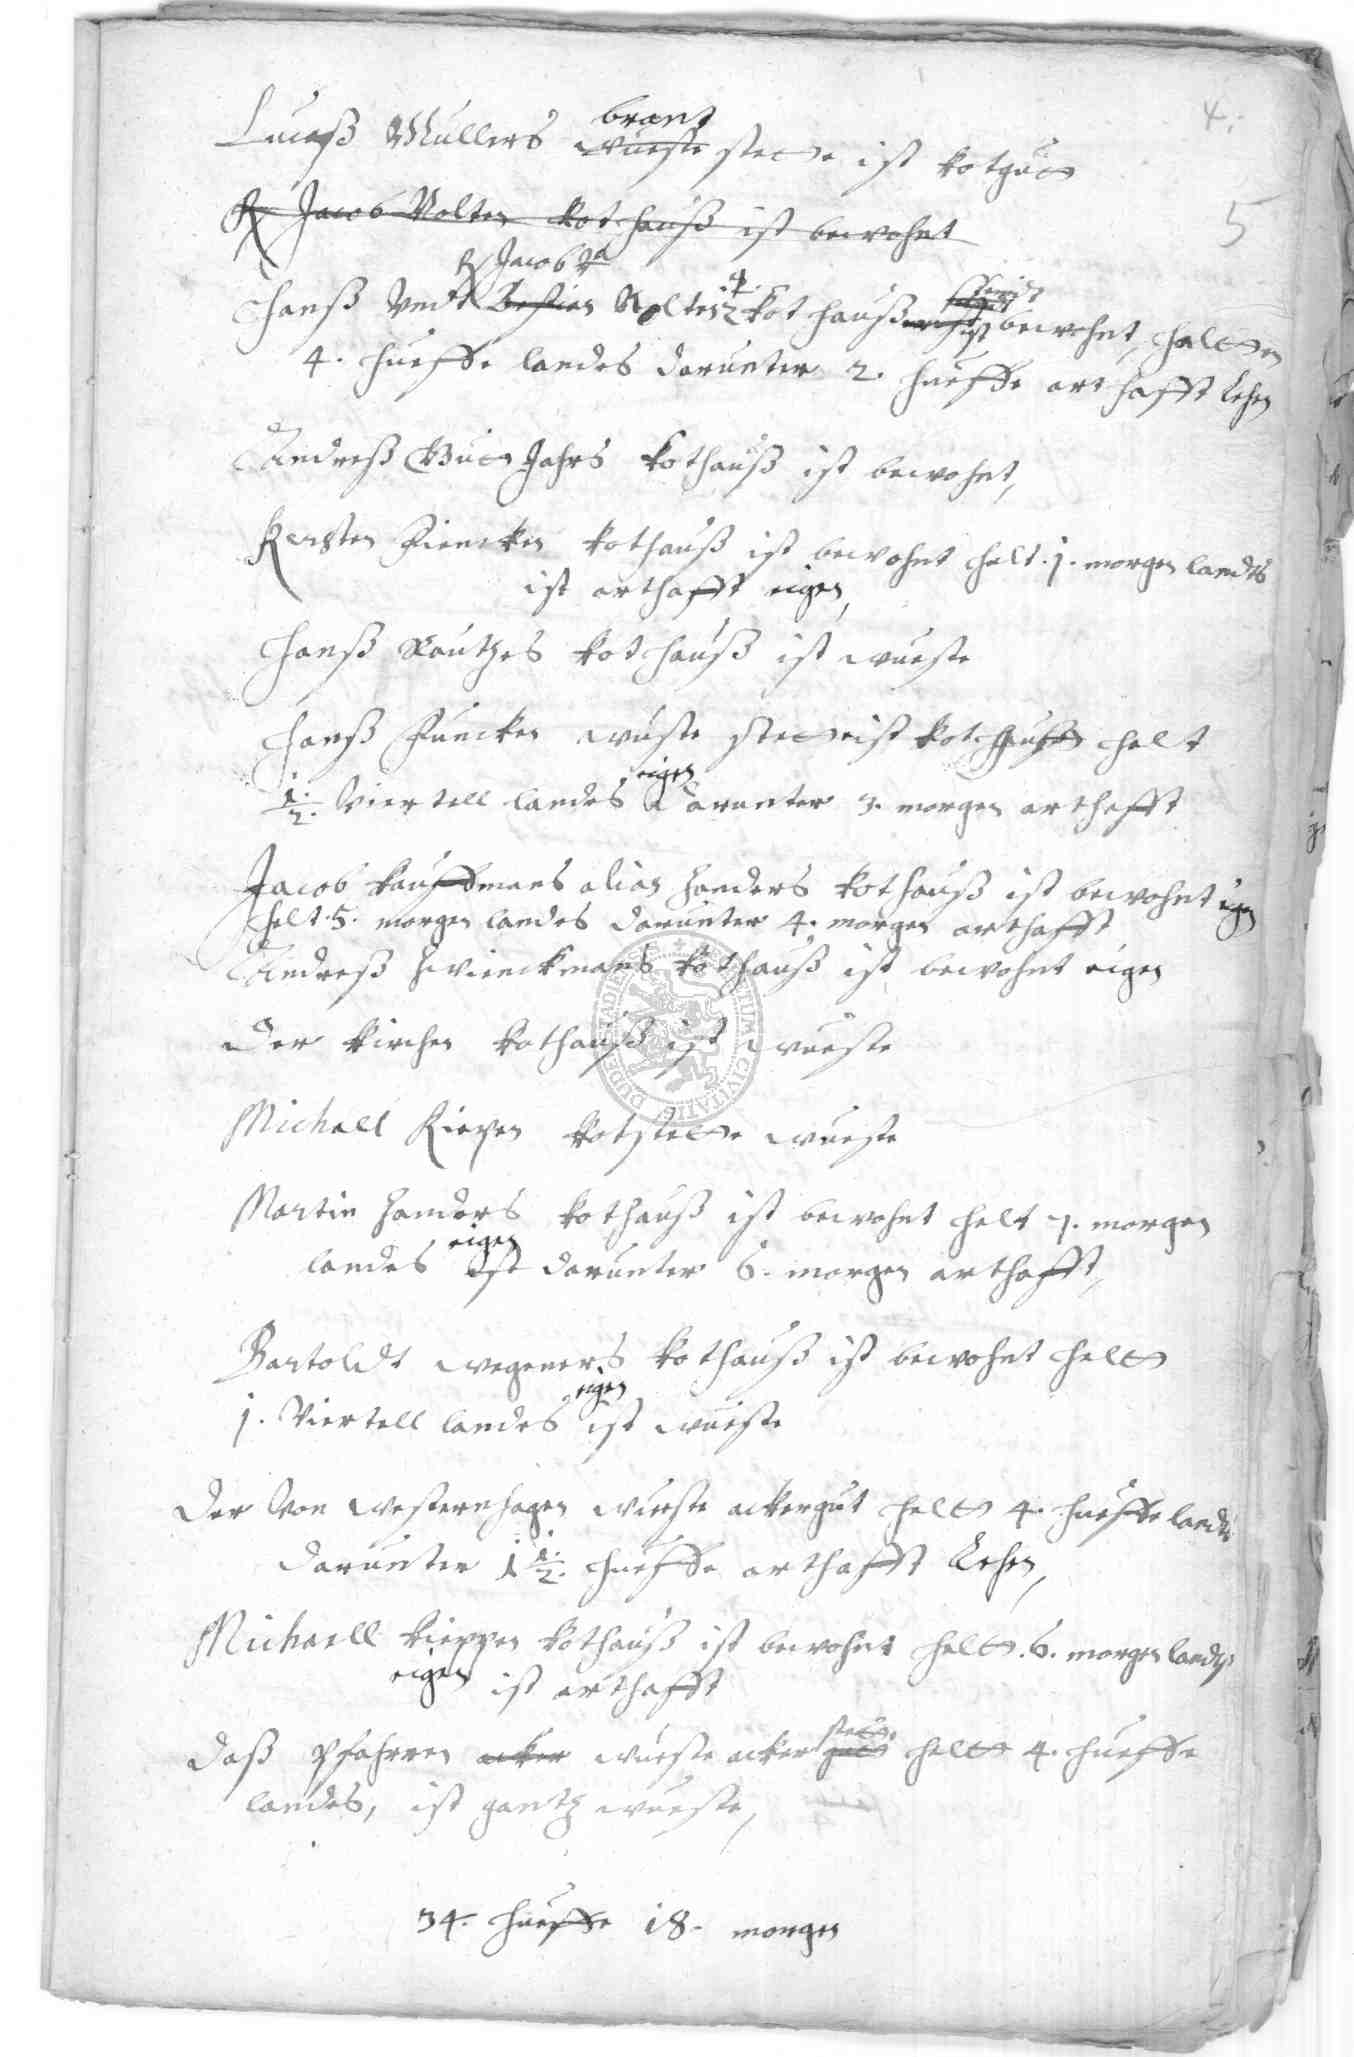 4.
5
brant
Lucaß Mullers wueste stette ist kotguth
Jacob Nolten kothauß ist bewohnt
Jacob
Hanß Undt Nolten 2 kothauß ist bewohnt, halten
4. hueffe landes darunter 2. hueffe arthafft Lehen
Andreß Guth Jahrs kothauß ist bewohnt,
Kersten Fiencken kothauß ist bewohnt helt .1. morgen landes
ist arthafft eigen,
Hanß kothauß ist wueste
Hanß Funcken wuste stette ist helt
eigen
1/2. Viertell landes darunter 3. morgen arthafft
Jacob kauffmans alias Handers kothauß ist bewohnt eigen
helt .5. morgen landes darunter 4. morgen arthafft
Andreß Zwinckmans kothauß ist bewohnt eigen
Der kirchen kothauß ist wueste
Michaell kotstette wueste
Martin Handers kothauß ist bewohnt helt 7. morgen
eigen
landes ist darunter 6. morgen arthafft,
Bartoldt wegeners kothauß ist bewohnt helt
eigen
1. Viertell landes ist wueste
Der Von westernhagen wueste ackergut helt 4. hueffe landes
darunter 1 1/2. hueffe arthafft Lehen,
Michaell kothauß ist bewohnt helt .6. morgen landes
eigen ist arthafft
stette
Daß pfahrren acker wueste acker guth helt 4. hueffe
landes, ist gantz wueste,
34. hueffe 18. morgen